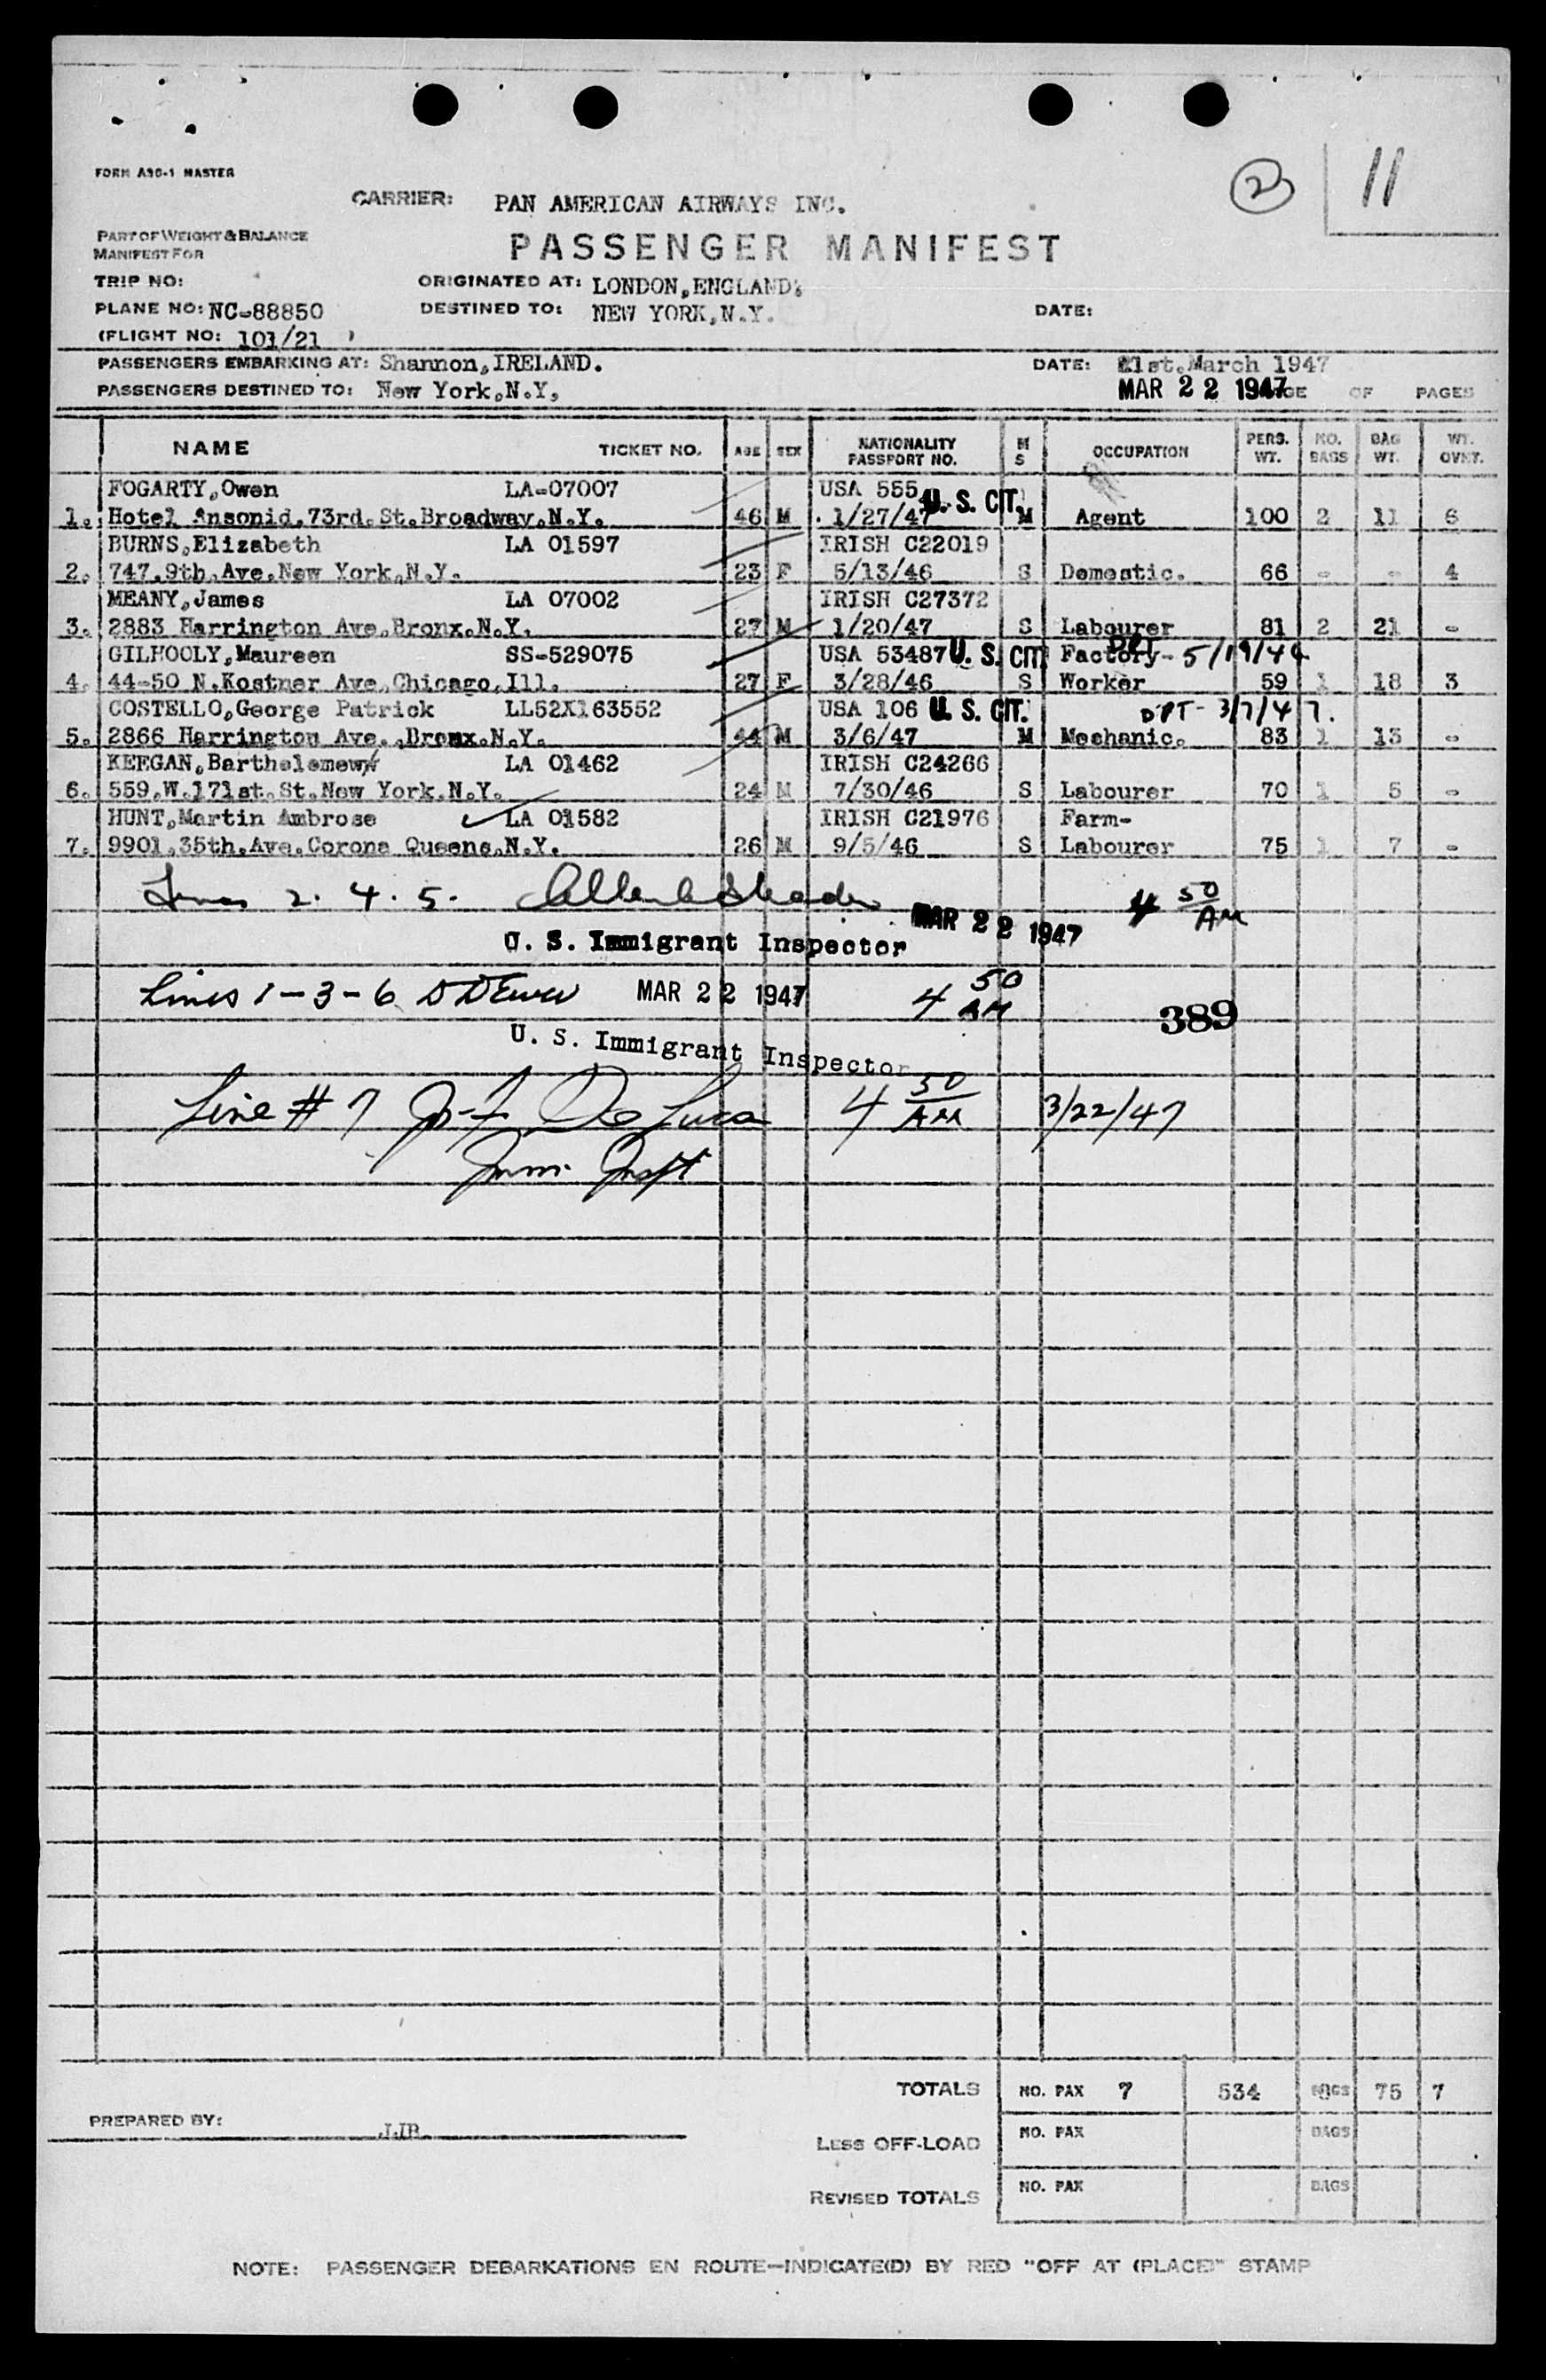 FORM A30-1 MASTER
2
11
CARRIER: PAN AMERICAN AIRWAYS INC.
PART OF WEIGHT & BALANCE
MANIFEST FOR
PASSENGER MANIFEST
TRIP NO: ORIGINATED AT: LONDON,ENGLAND.
PLANE NO: NC-88850 DESTINED TO: NEW YORK,N.Y. DATE:
(FLIGHT NO: 101/21 )
PASSENGERS EMBARKING AT: Shannon,IRELAND. DATE: 21st.March 1947
PASSENGERS DESTINED TO: New York,N.Y, MAR 22 1947 PAGE OF PAGES
NAME TICKET NO. AGE SEX NATIONALITY PASSPORT NO. M S OCCUPATION PERS. WT. NO. BAGS BAG WT. WT. OVWT.
FOGARTY,Owen LA-07007 USA 555 U. S. CIT.
1. Hotel Ansonid.73rd.St.Broadway.N.Y. 46 M 1/27/47 M Agent 100 2 11 6
BURNS,Elizabeth LA 01597 IRISH C22019
2. 747.9th.Ave.New York.N.Y. 23 F 5/13/46 S Domestic. 66 - - 4
MEANY,James LA 07002 IRISH C27372
3. 2883 Harrington Ave.Bronx.N.Y. 27 M 1/20/47 S Labourer 81 2 21 -
GILHOOLY,Maureen SS-529075 USA 53487 U. S. CIT. Factory- DPT 5/19/46
4. 44-50 N.Kostner Ave.Chicago,Ill. 27 F 3/28/46 S Worker 59 1 18 3
COSTELLO,George Patrick LL52X163552 USA 106 U. S. CIT. DPT- 3/7/47.
5. 2866 Harrington Ave.,Bronx.N.Y. 44 M 3/6/47 M Mechanic. 83 1 13 -
KEEGAN,Bartholemew LA 01462 IRISH C24266
6. 559.W.171st.St.New York.N.Y. 24 M 7/30/46 S Labourer 70 1 5 -
HUNT,Martin Ambrose LA 01582 IRISH C21976 Farm-
7. 9901.35th.Ave.Corona Queens.N.Y. 26 M 9/5/46 S Labourer 75 1 7 -
Lines 2. 4. 5. MAR 22 1947 4 50 AM
U. S. Immigrant Inspector
Lines 1-3-6 MAR 22 1947 4 50 AM
389
U. S. Immigrant Inspector
Line # 7 De Luca 4 50 AM 3/22/47
Imm. Inspt
TOTALS NO. PAX 7 534 BAGS 75 7
PREPARED BY: JJB.
LESS OFF-LOAD NO. PAX BAGS
REVISED TOTALS NO. PAX BAGS
NOTE: PASSENGER DEBARKATIONS EN ROUTE—INDICATE(D) BY RED "OFF AT (PLACE)" STAMP